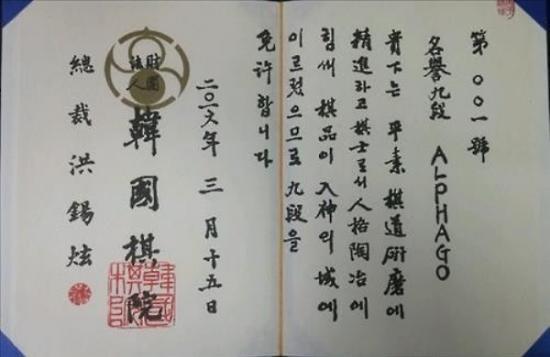 第〇〇一號
名譽九段 ALPHAGO
貴下는 平素 棋道硏磨에
精進하고 棋士로서 人格陶冶에
힘써 棋品이 入神의 域에
이르렀으므로 九段을
免許합니다
二〇一六年 三月 十五日
財團法人 韓國棋院
總裁 洪錫炫